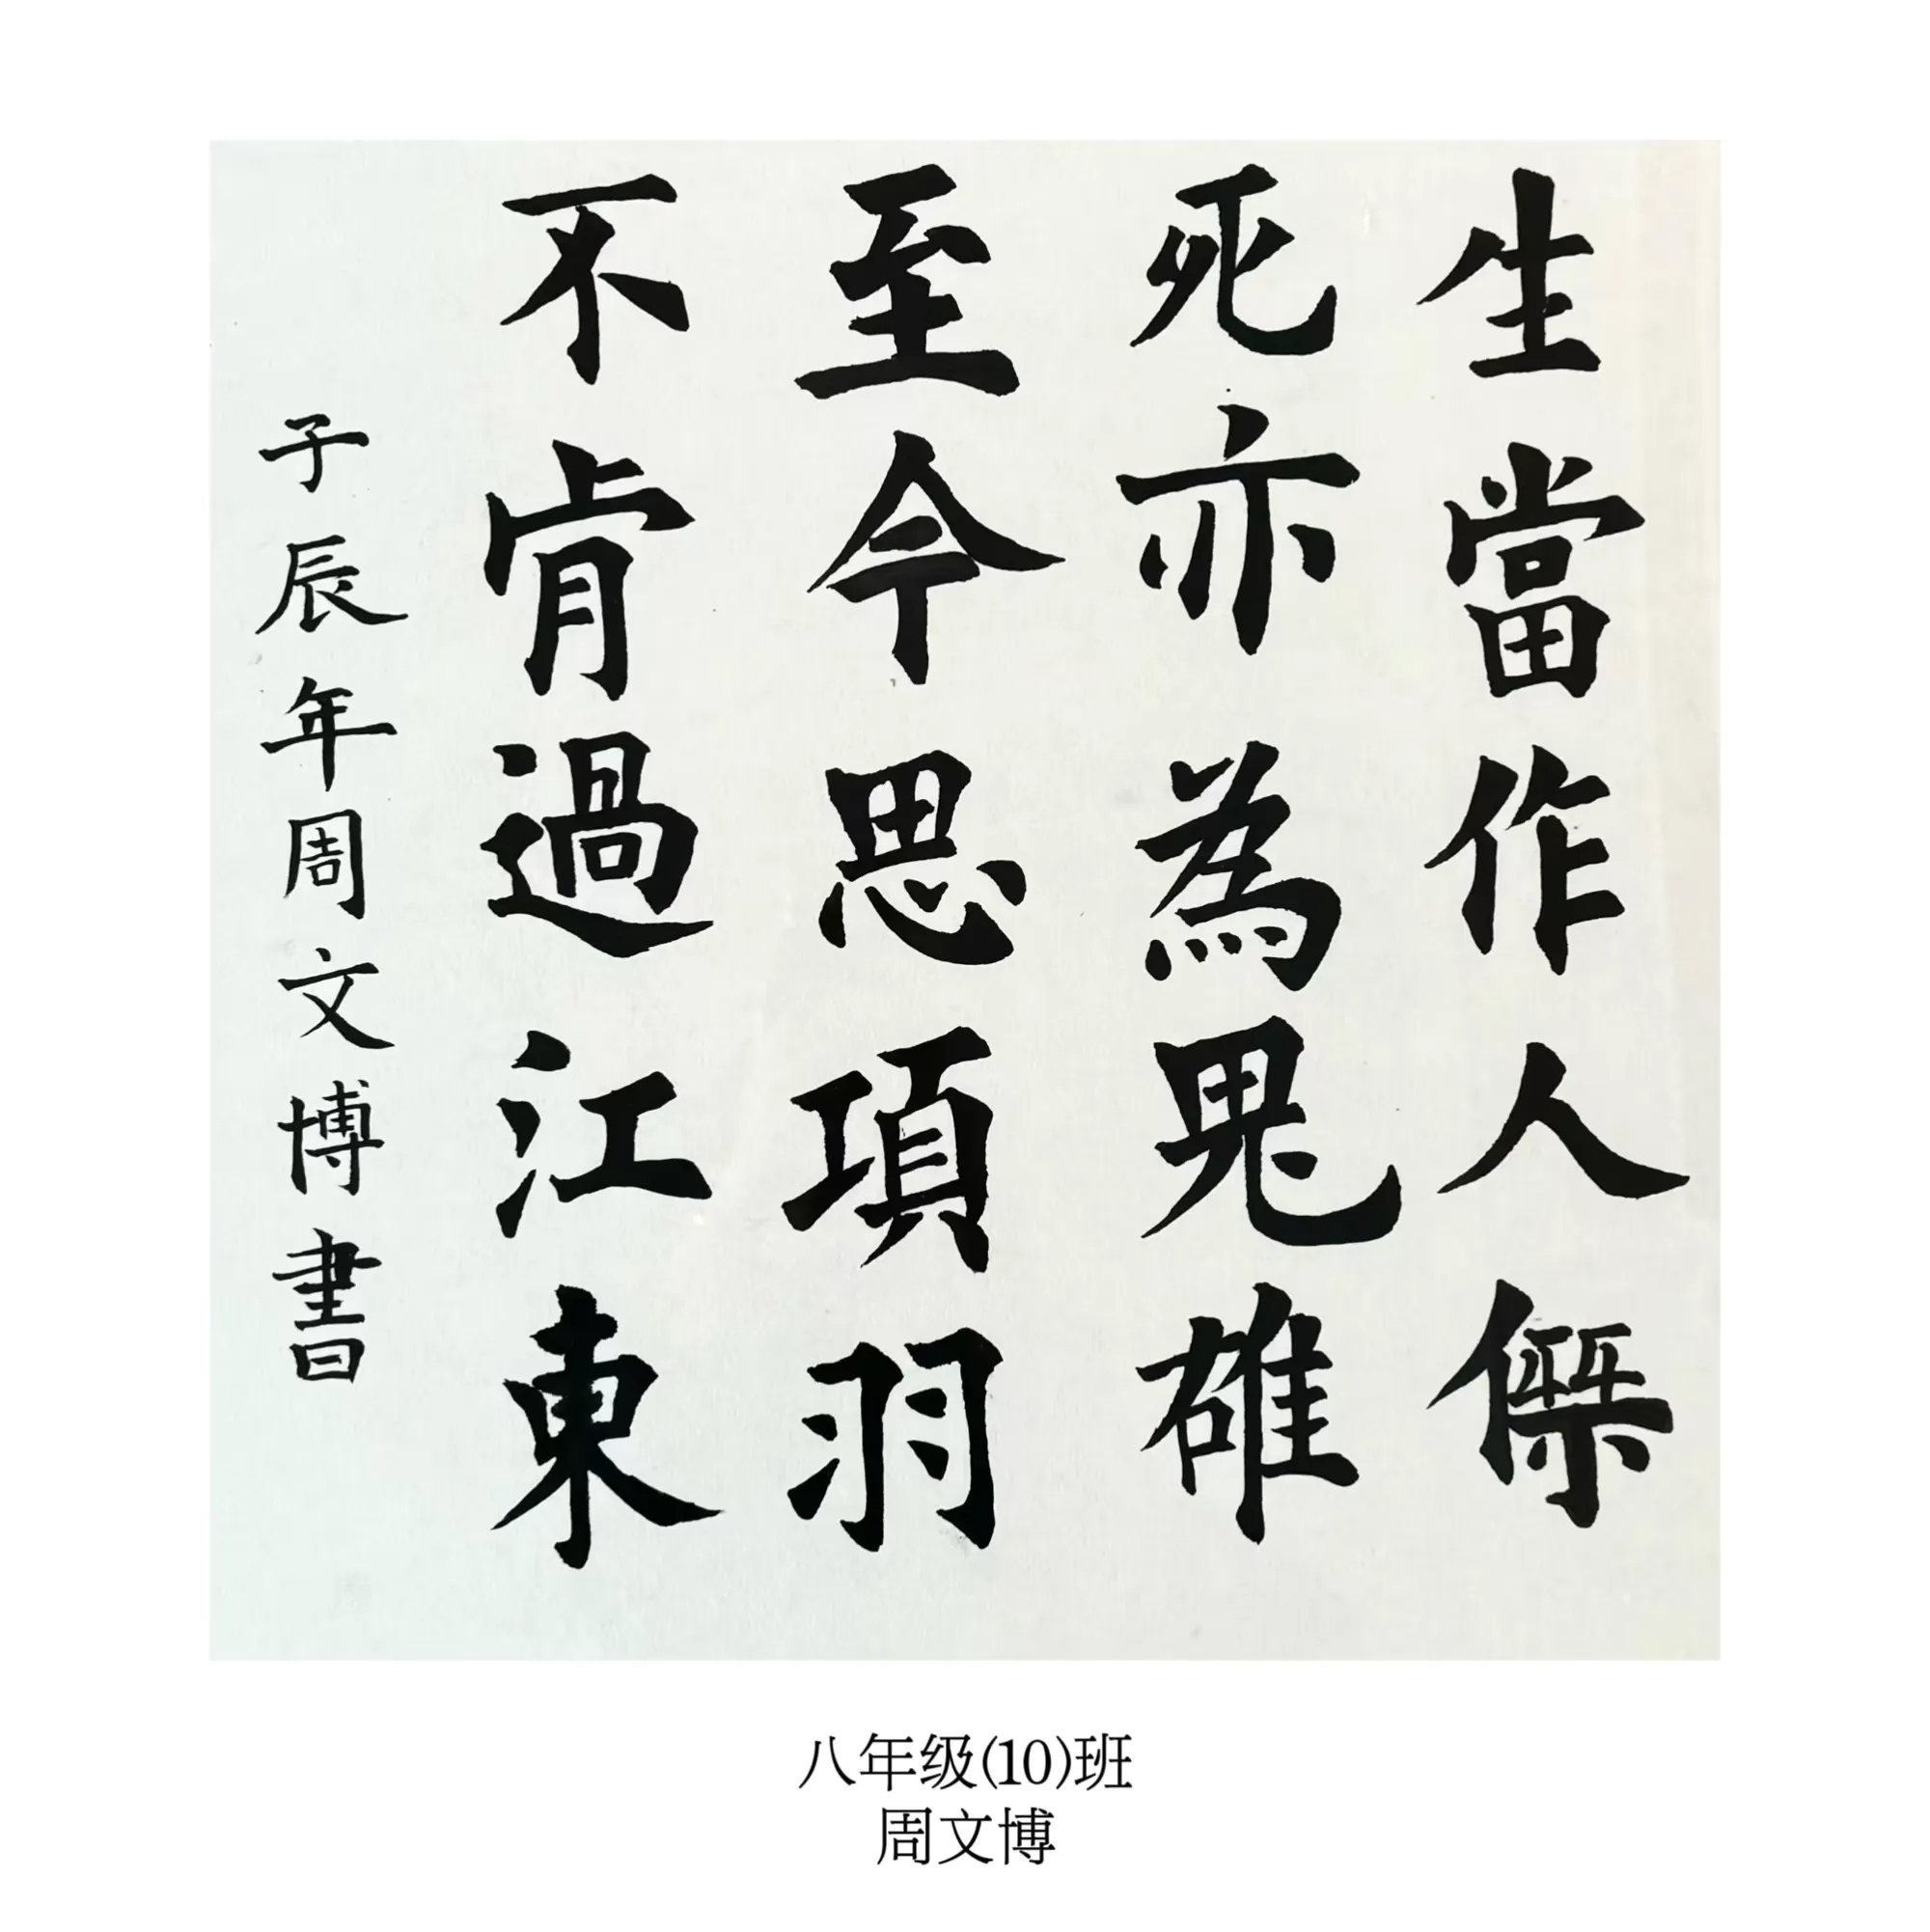 生當作人傑
死亦為鬼雄
至今思項羽
不肯過江東
子辰年周文博書
八年级(10)班
周文博